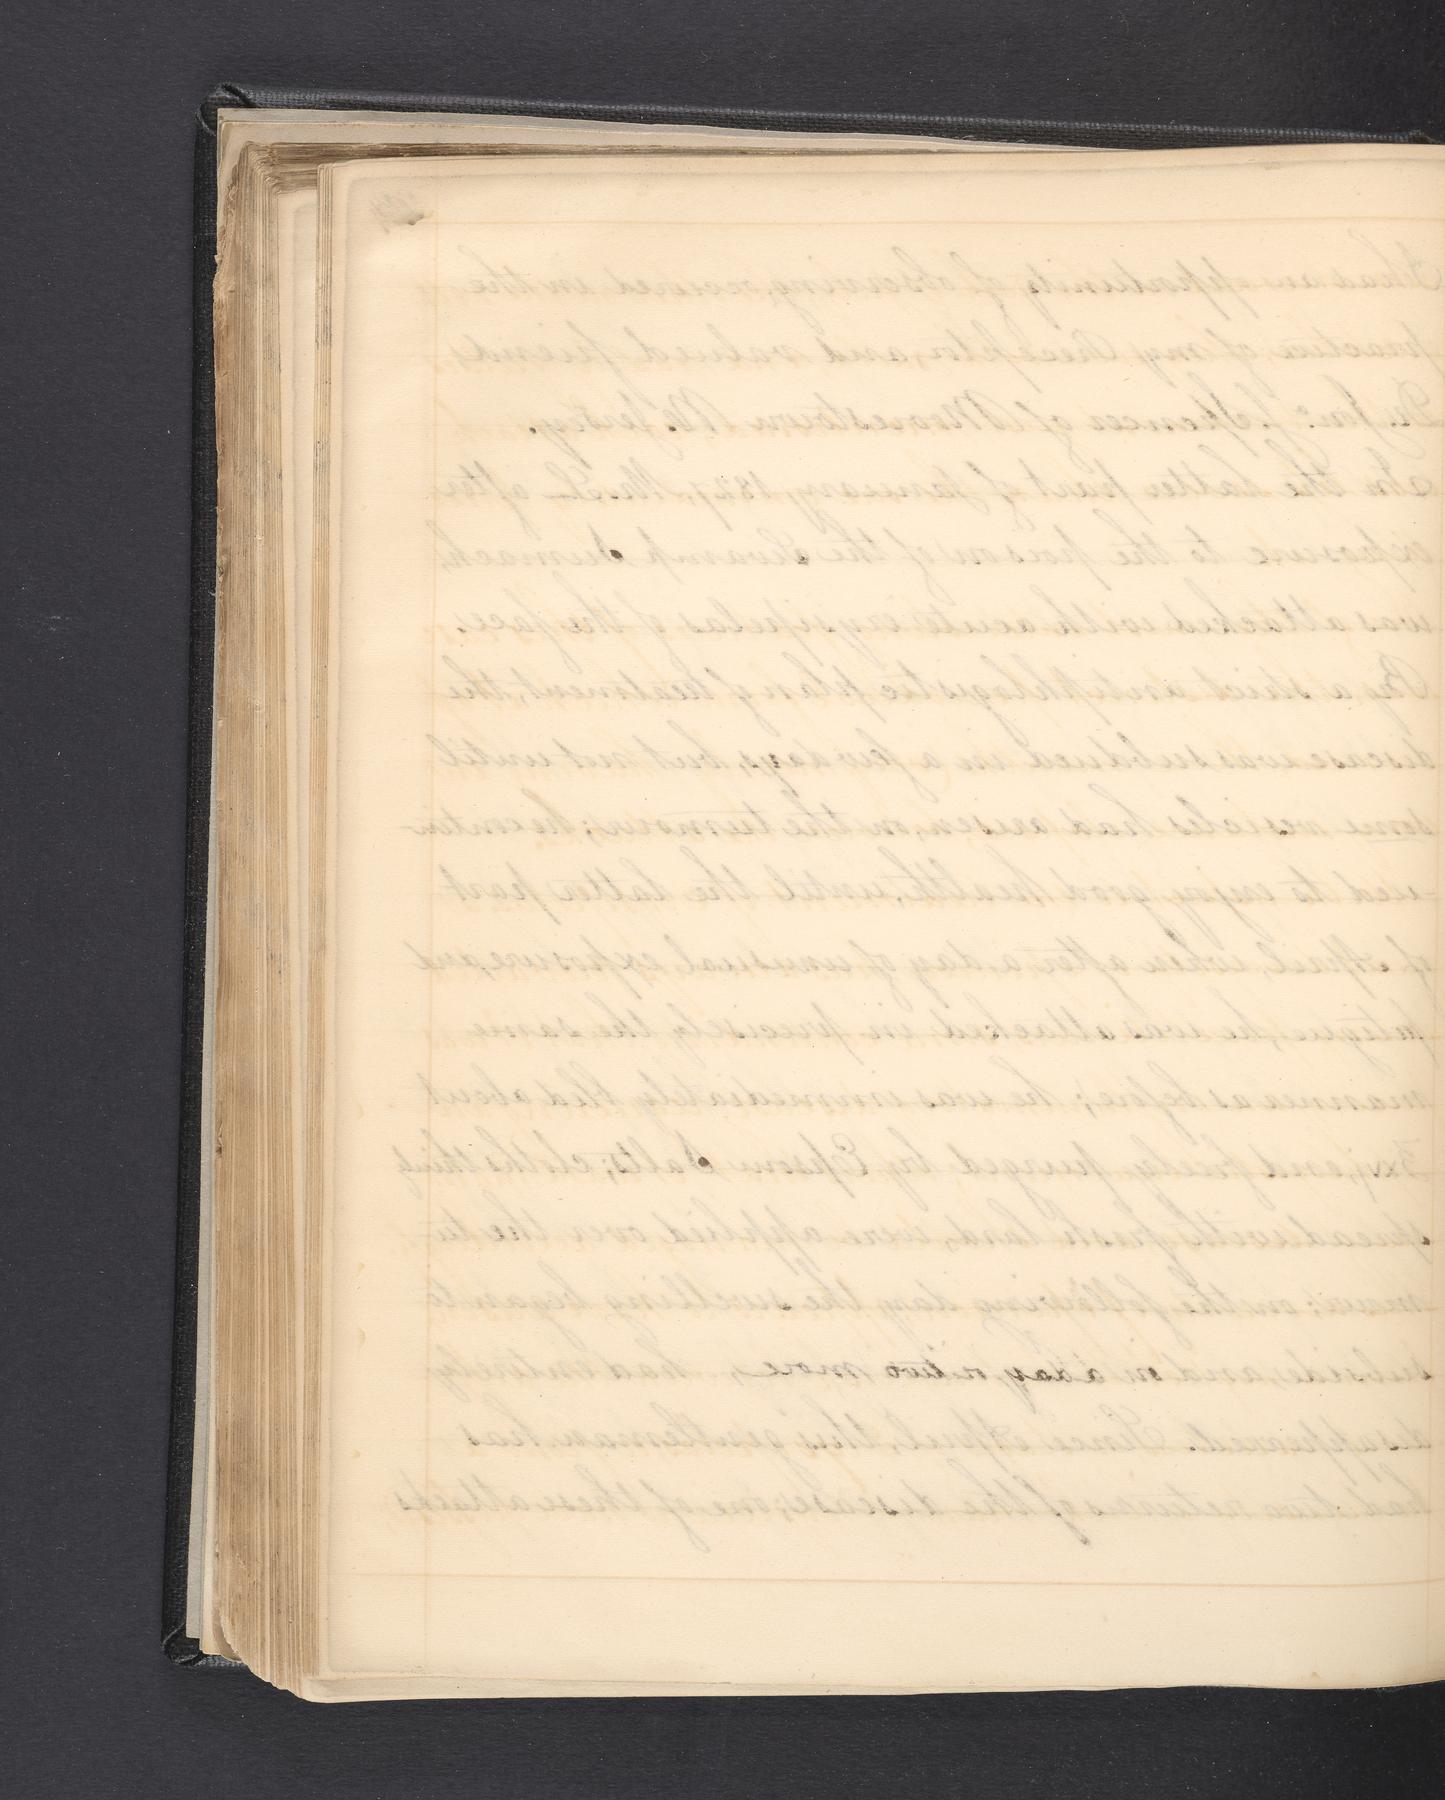 I had an opportunity of observing, occured in the
practice of my Preceptor, and valued friend,
Dr. Jno. J. Spencer of Moorestown N. Jersey.
In the latter part of January, 1827, M. L. after
exposure to the poison of the Swamp Sumach,
was attacked with acute erysipelas of the face.
By a strict antiphlogistic plan of treatment, the
disease was subdued in a few days, but not until
some vesicles had arisen, on the tumour; he contin-
-ued to enjoy good health, until the latter part
of April, when after a day of unusual exposure, and
fatigue, he was attacked in precisely the same
manner as before; he was immediately bled about
℥xvj, and freely purged by Epsom Salts; cloths thinly
spread with fresh lard, were applied over the tu-
-mour; on the following day, the swelling began to
subside, and in a day or two more, had entirely
disappeared. Since April, this gentleman has
had two returns of the disease; one of these attacks